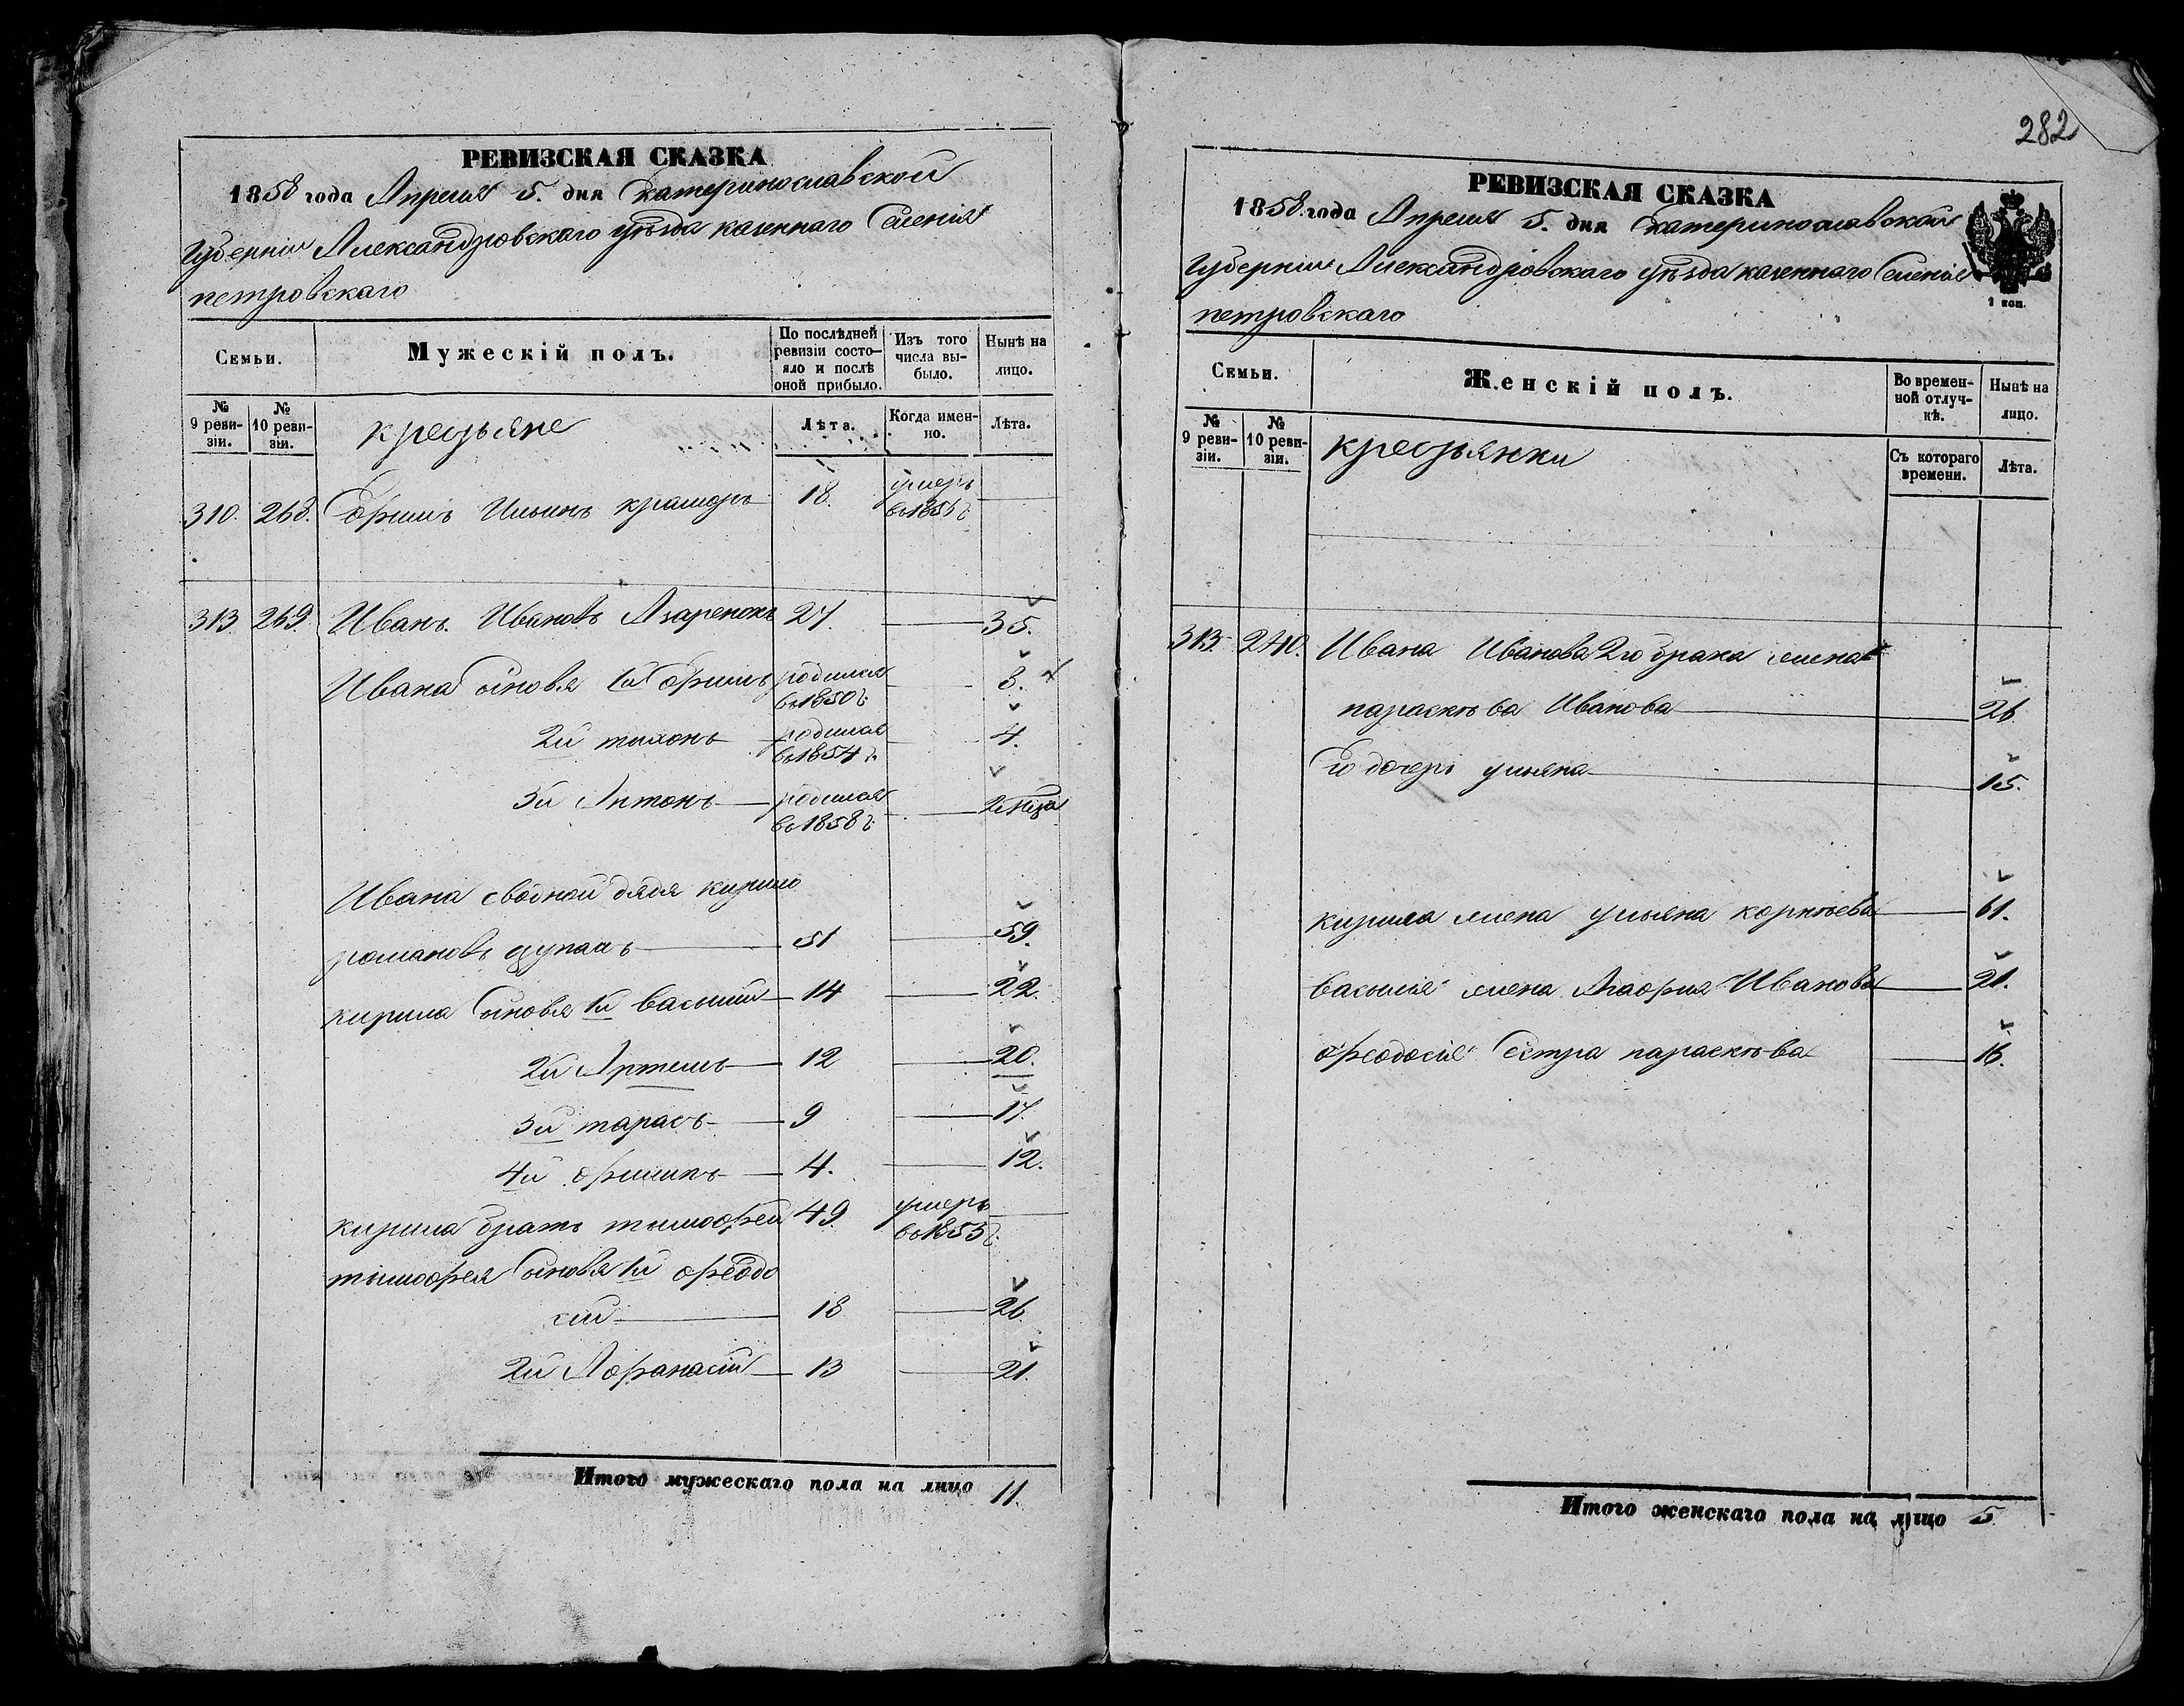 РЕВИЗСКАЯ СКАЗКА
1858 года Апреля 5. дня Екатеринославской
Губерніи Александровскаго уѣзда казеннаго Селенія
петровскаго
Семьи.
Мужескій полъ.
По послѣдней ревизіи состояло и послѣ оной прибыло.
Изъ того числа выбыло.
Нынѣ на лицо.
№ 9 ревизіи.
№ 10 ревизіи.
крестьяне
Лѣта.
Когда именно.
Лѣта.
310. 268. Ефимъ Ильинъ крамаръ 18. умеръ в 1855 г.
313 269. Иванъ Ивановъ Азаренокъ 27. 35.
Ивана Сыновья 1й ефимъ родился в 1850 г. 8.
2й тихонъ родился в 1854 г. 4.
3й Антонъ родился в 1858 г. 2 мѣца
Ивана сводной дядя кирило
романовъ цупакъ 51 59.
кирила Сыновья 1й василий 14 22.
2й Артемъ 12 20.
3й тарасъ 9 17.
4й филипъ 4. 12.
кирила братъ тимофей 49. умеръ в 1853 г.
тимофея Сыновья 1й феодо
сий 18 26.
2й Афанасий 13 21.
Итого мужескаго пола на лицо 11.
282
РЕВИЗСКАЯ СКАЗКА
1858 года Апреля 5. дня Екатеринославской
Губерніи Александровскаго уѣзда казеннаго Селенія
петровскаго
1 коп.
Семьи.
Женскій полъ.
Во временной отлучкѣ.
Нынѣ на лицо.
№ 9 ревизіи.
№ 10 ревизіи.
крестьянки
Съ котораго времени.
Лѣта.
313 270. Ивана Иванова 2го брака жена
параскѣва Иванова 26
Его дочерь ульяна 15.
кирила жена ульяна корнѣева 61.
василия жена Агафия Иванова 21.
феодосия Сестра параскѣва 16.
Итого женскаго пола на лицо 5